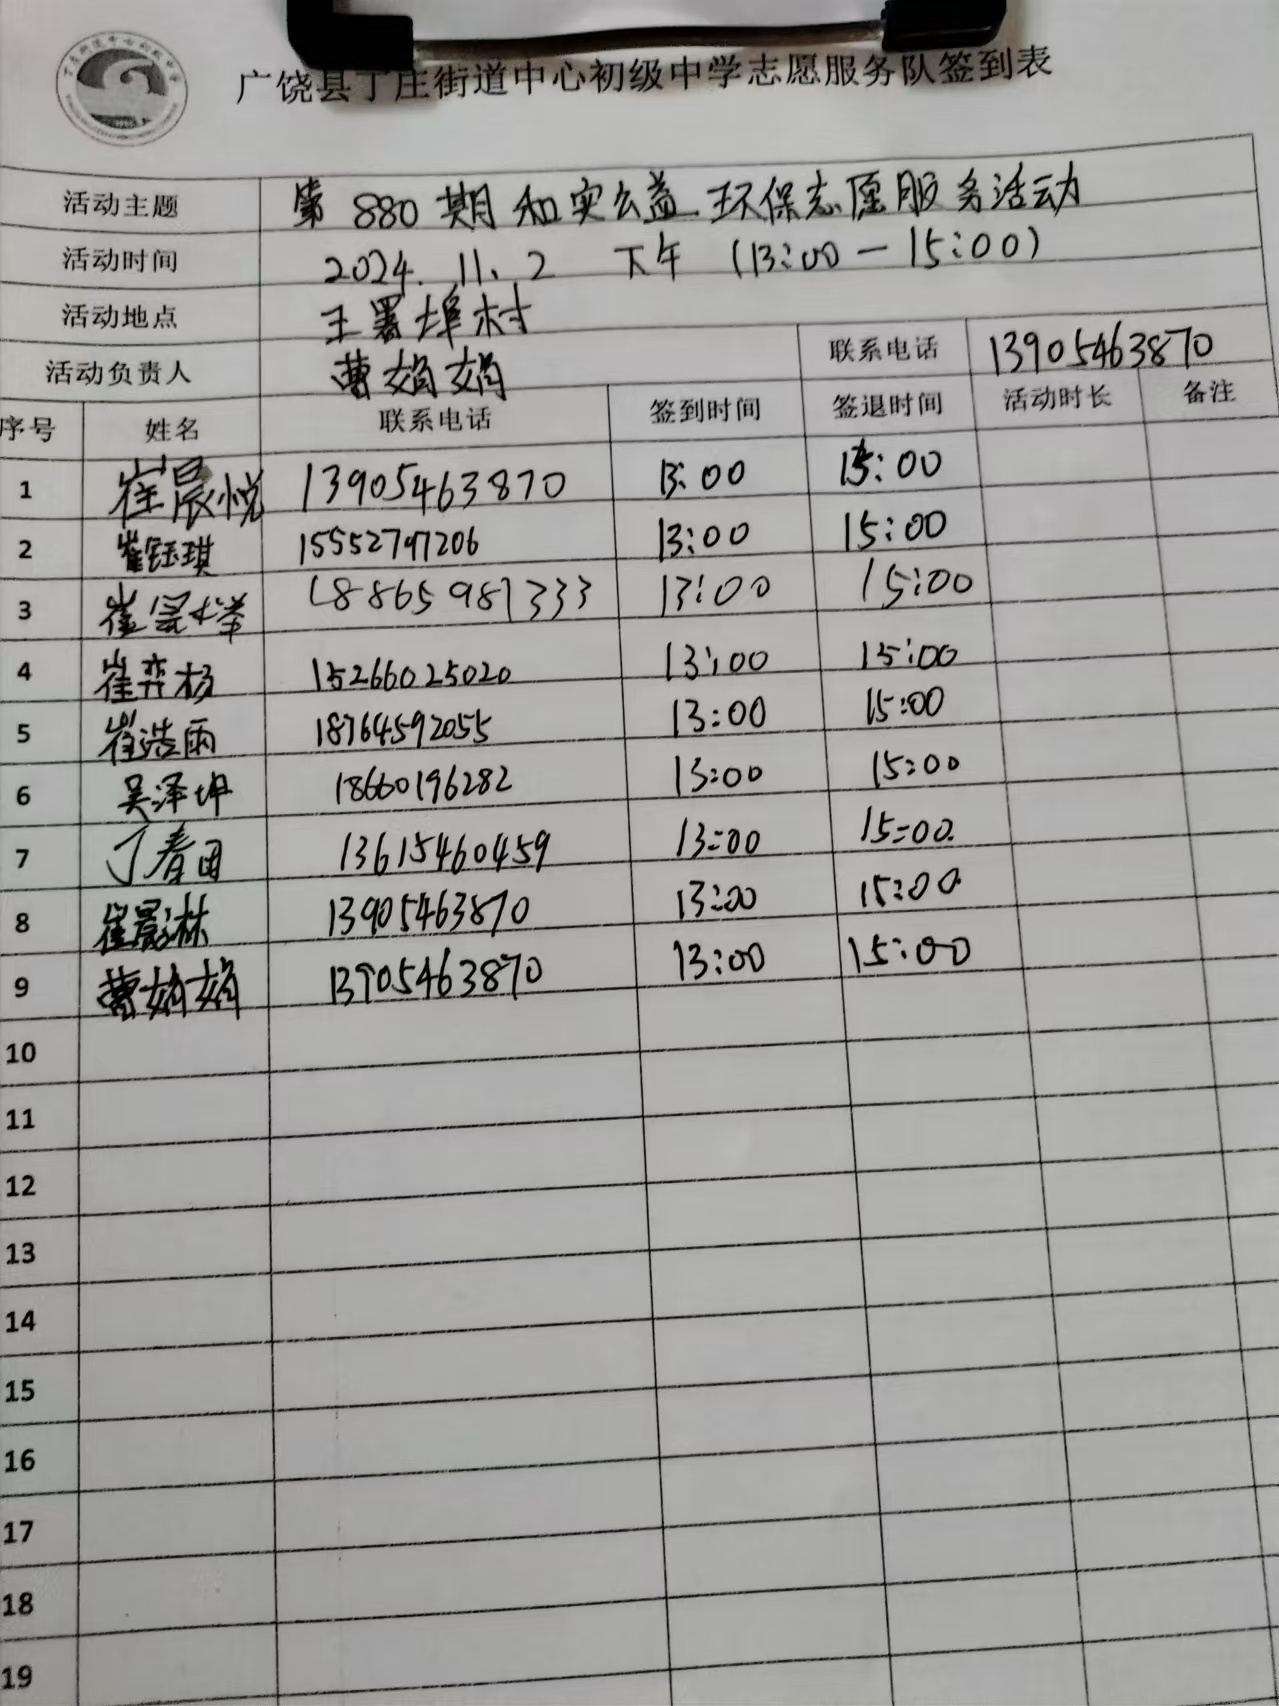 广饶县丁庄街道中心初级中学志愿服务队签到表
活动主题 第880期和实公益环保志愿服务活动
活动时间 2024.11.2 下午 (13:00-15:00)
活动地点 王署埠村
活动负责人 曹娟娟 联系电话 13905463870
序号 姓名 联系电话 签到时间 签退时间 活动时长 备注
1 崔晨悦 13905463870 13:00 15:00
2 崔钰琪 15552797206 13:00 15:00
3 崔 18865981333 13:00 15:00
4 崔弈杨 15266025020 13:00 15:00
5 崔浩雨 18764592055 13:00 15:00
6 吴泽坤 18660196282 13:00 15:00
7 丁春田 13615460459 13:00 15:00
8 崔 林 13905463870 13:00 15:00
9 曹娟娟 13905463870 13:00 15:00
10
11
12
13
14
15
16
17
18
19